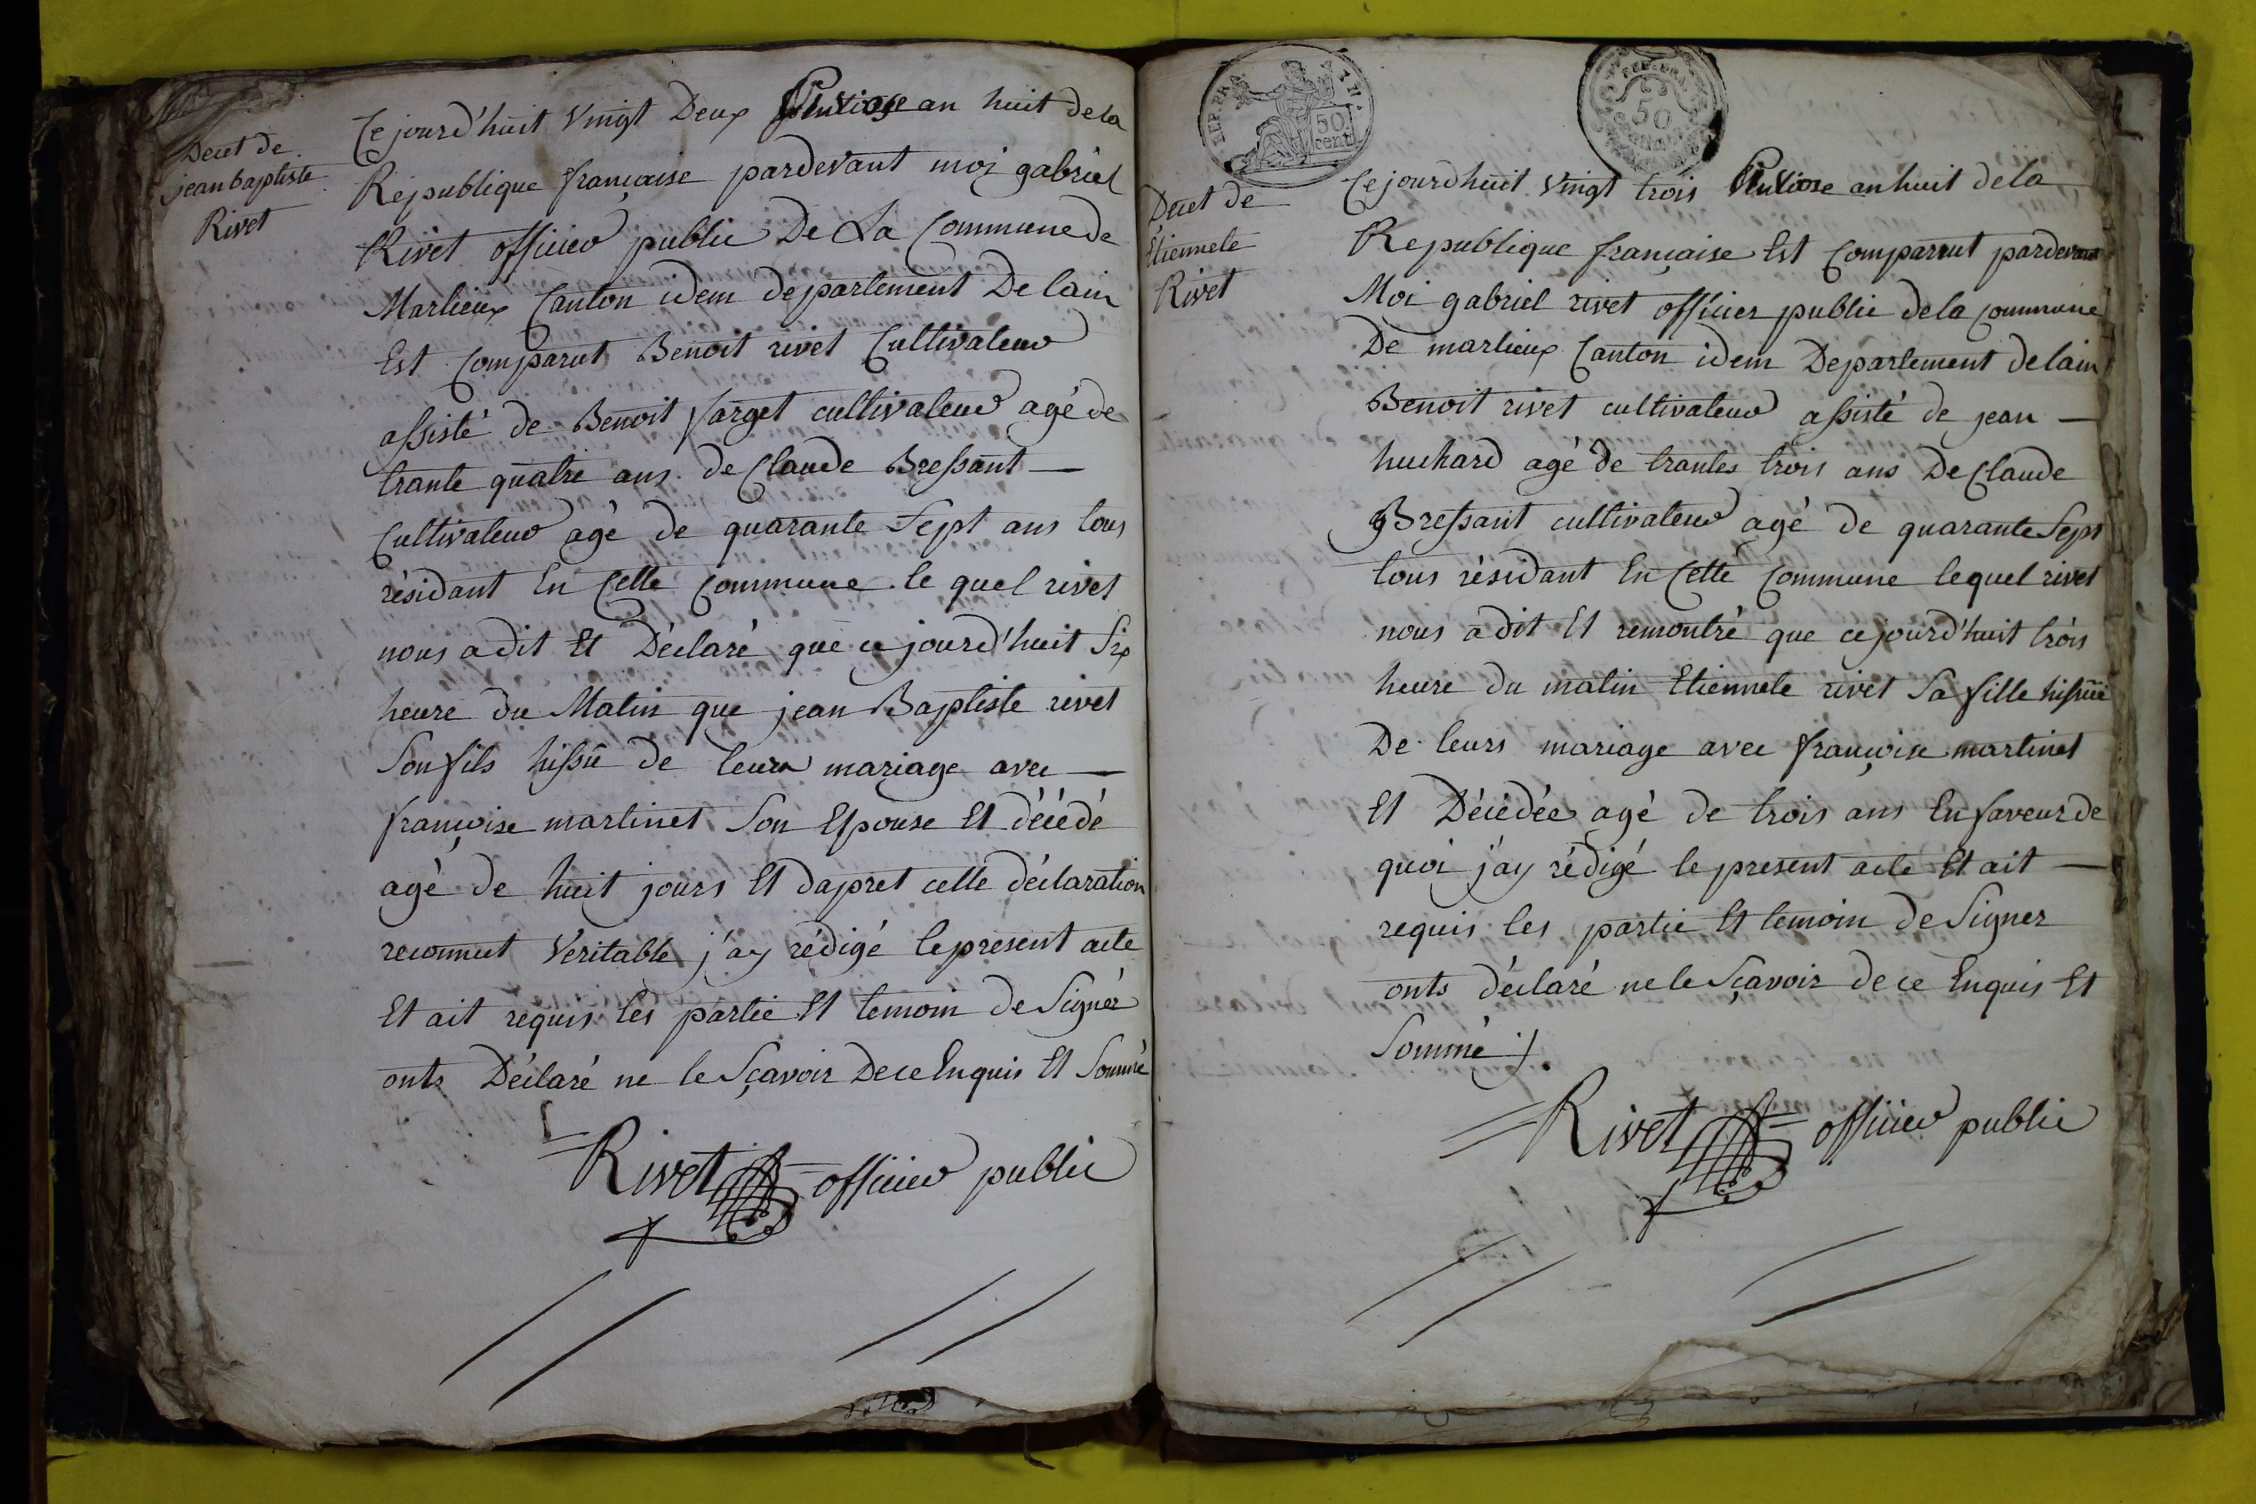 Decet de
jean baptiste
Rivet
Ce jourd'huit vingt Deux Pluviose an huit de la
Republique française pardevant moi gabriel
Rivet officier public De La Commune de
Marlieux Canton idem departement De lain
Est Comparut Benoit rivet Cultivateur
assisté de Benoit farget cultivateur agé de
trante quatre ans de Claude Bressant —
Cultivateur agé de quarante Sept ans tous
résidant En Cette Commune le quel rivet
nous a dit Et Déclaré que ce jourd'huit Six
heure du Matin que jean Baptiste rivet
Son fils hissû de leurs mariage avec —
françoise martinet Son Epouse Et décédé
agé de huit jours Et dapret cette déclaration
reconnut Veritable j'ay rédigé le present acte
Et ait requis les partie Et temoin de Signér
onts Déclaré ne le Sçavoir De ce Enquis Et Sommé
Rivet officier public
REP. FRA
50
cent
REP. FRA
50
Decet de
Etiennete
Rivet
Ce jourdhuit vingt trois Pluviose an huit de la
Republique française Est Comparrut pardevant
Moi gabriel rivet officier public de la commune
De marlieux Canton idem Departement de lain
Benoit rivet cultivateur assisté de jean —
huchard agé de trantes trois ans De Claude
Bressant cultivateur agé de quarante Sept
tous résidant En Cette Commune lequel rivet
nous a dit Et remontré que ce jourd'huit trois
heure du matin Etiennete rivet Sa fille hissuë
De leurs mariage avec françoise martinet
Et Décédée agé de trois ans En faveur de
quoi j'ay rédigé le present acte Et ait —
requis les partie Et temoin de Signer
onts déclaré ne le Sçavoir de ce Enquis Et
Sommé ./.
Rivet officier public